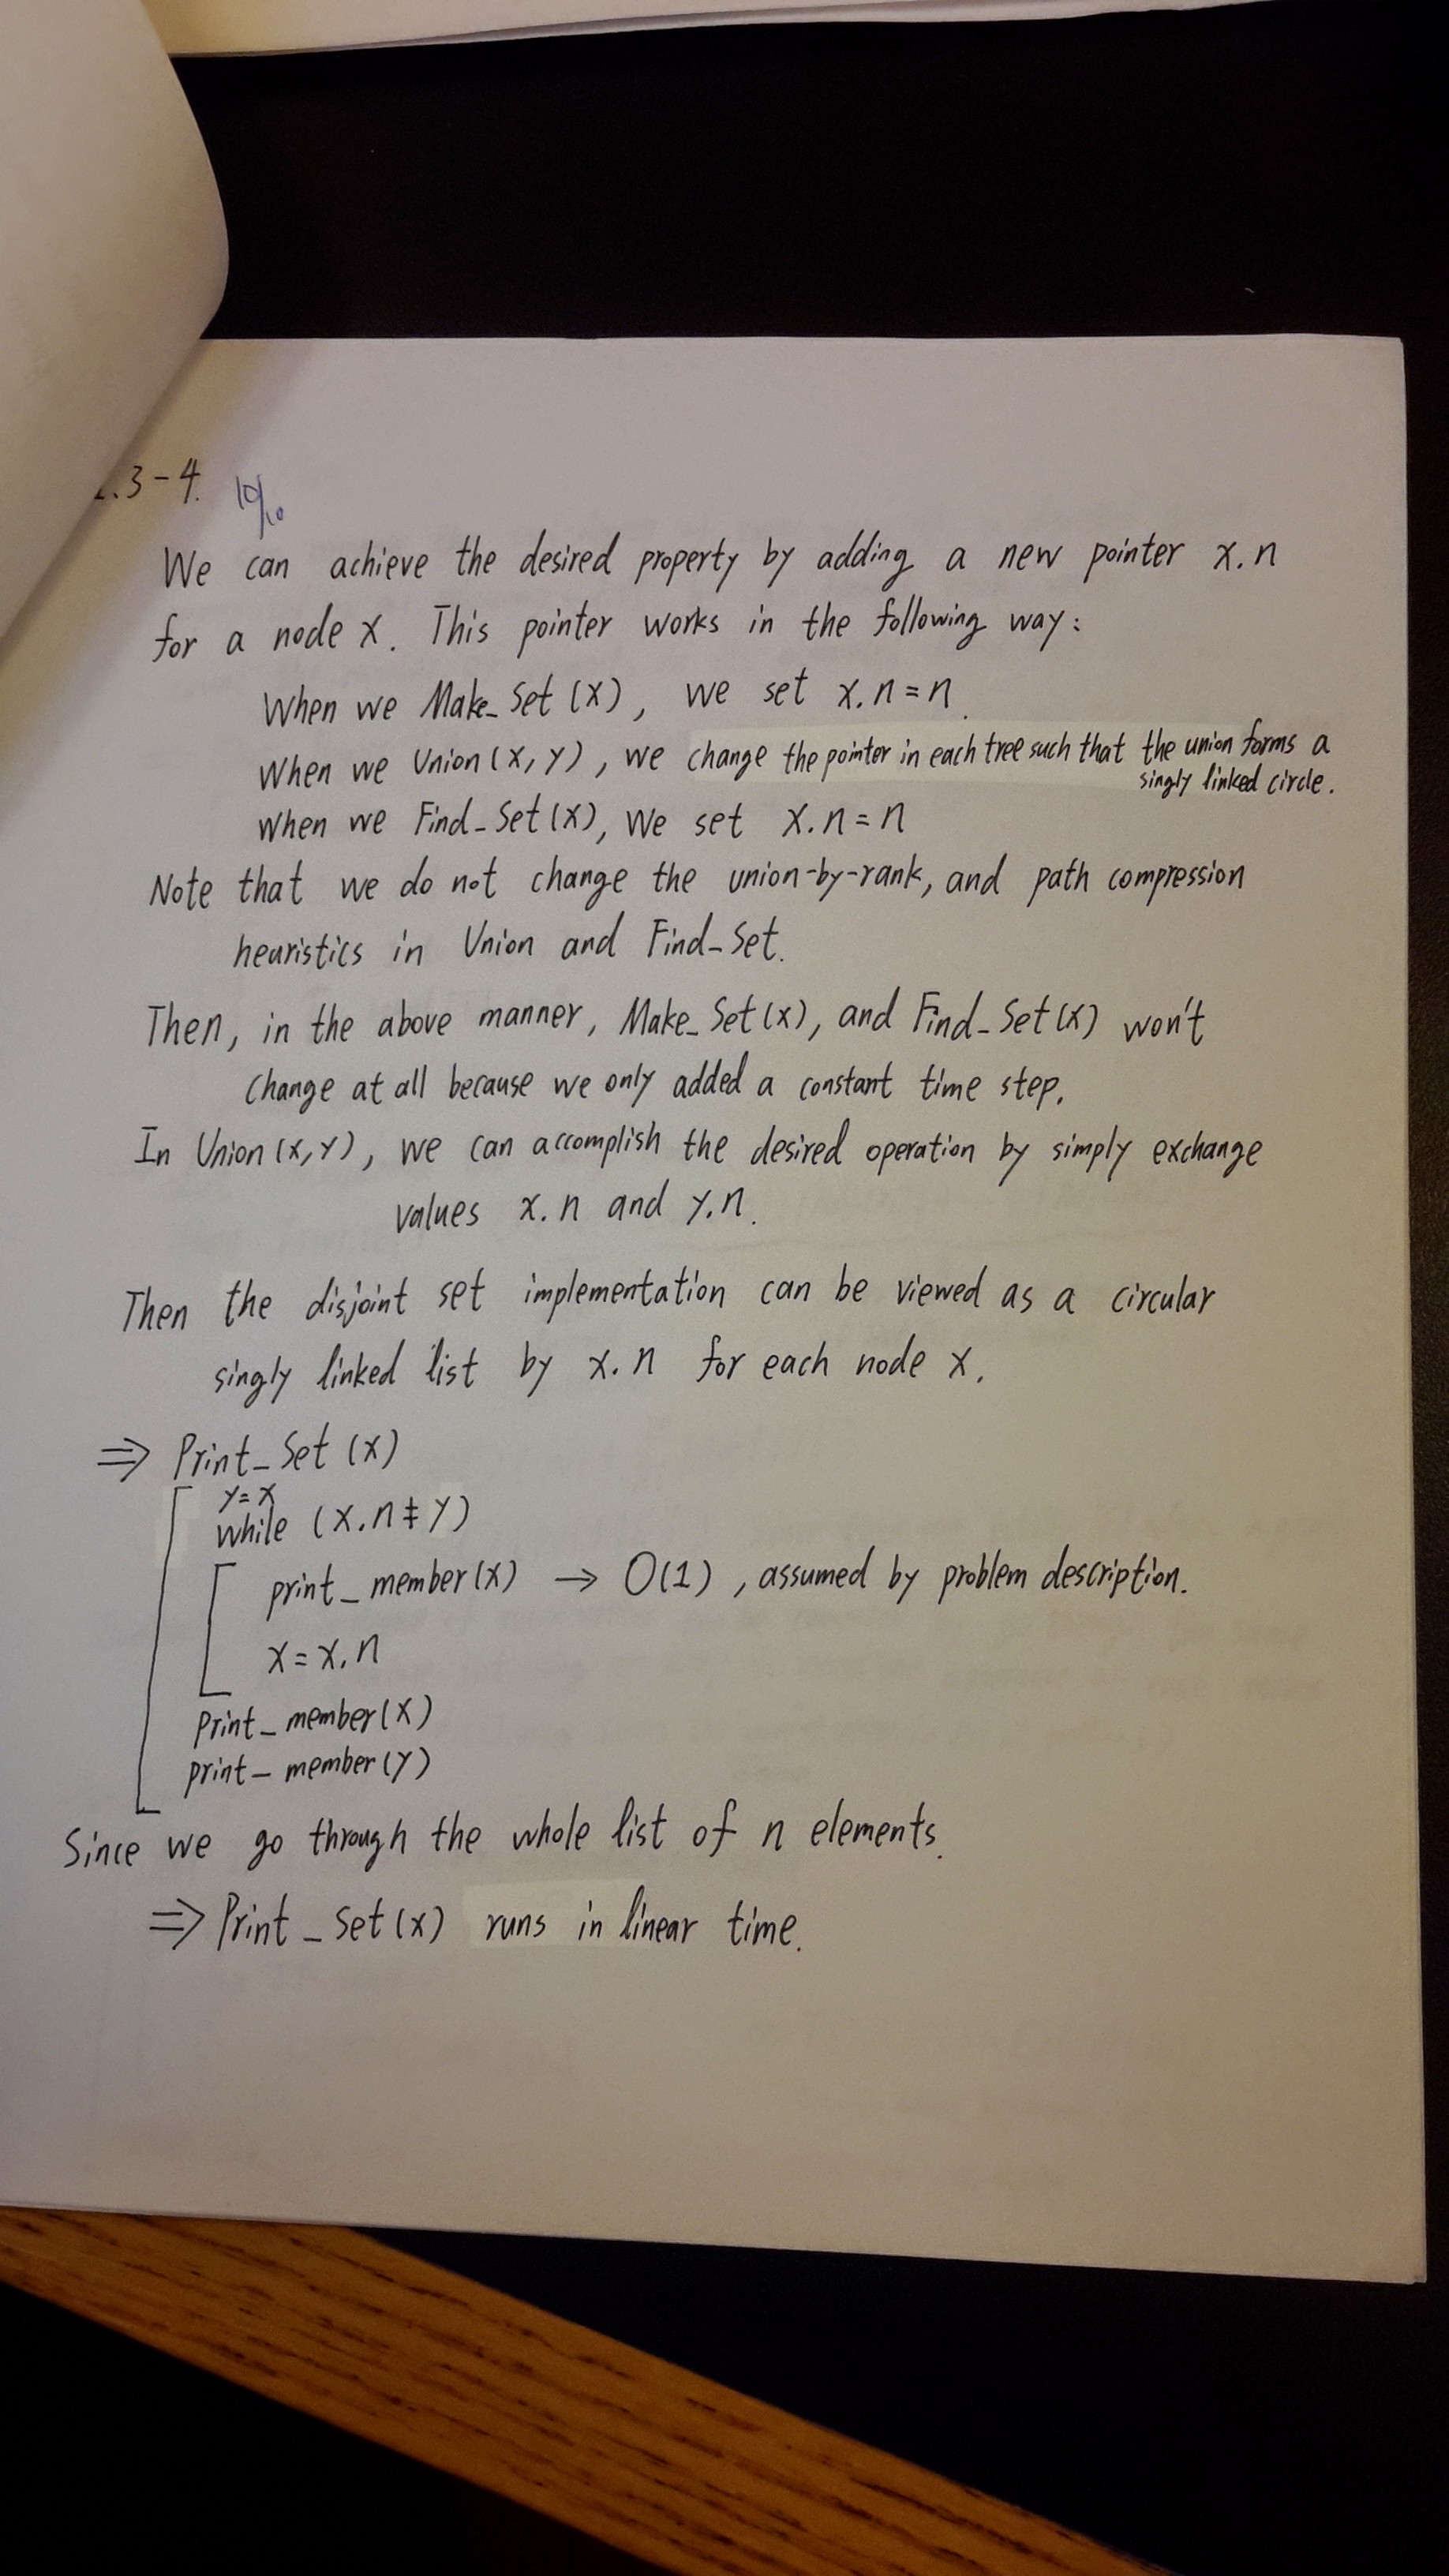 .3-4. 10/10
We can achieve the desired property by adding a new pointer x.n
for a node x. This pointer works in the following way:
When we Make_Set(x), we set x.n=n.
When we Union(x,y), we change the pointer in each tree such that the union forms a
singly linked circle.
When we Find_Set(x), we set x.n=n
Note that we do not change the union-by-rank, and path compression
heuristics in Union and Find_Set.
Then, in the above manner, Make_Set(x), and Find_Set(x) won't
change at all because we only added a constant time step.
In Union(x,y), we can accomplish the desired operation by simply exchange
values x.n and y.n.
Then the disjoint set implementation can be viewed as a circular
singly linked list by x.n for each node x.
⇒ Print_Set(x)
y=x
while (x.n≠y)
print_member(x) → O(1), assumed by problem description.
x=x.n
print_member(x)
print_member(y)
Since we go through the whole list of n elements.
⇒ Print_Set(x) runs in linear time.